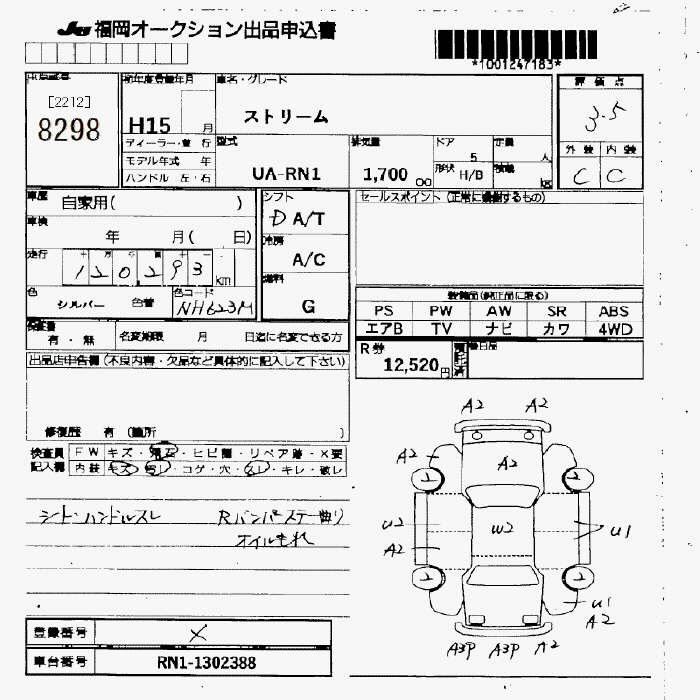 JU 福岡オークション出品申込書
*1001247183*
出品番号
[2212]
8298
初年度登録年月
H15 月
車名・グレード
ストリーム
評価点
3.5
ディーラー・並 行
モデル年式 年
ハンドル 左・右
型式
UA-RN1
排気量
1,700 cc
ドア
5
形状 H/B
定員
人
積載
kg
外装 内装
C C
車歴
自家用( )
車検
年 月( 日)
走行
十 万 千 百 十
120,293 km
色
シルバー 色替
色コード
NH623M
シフト
D A/T
冷房
A/C
燃料
G
セールスポイント (正常に機能するもの)
装備品(純正品に限る)
PS PW AW SR ABS
エアB TV ナビ カワ 4WD
有・無
名変期限 月 日迄に名変できる方
R券
12,520円
預託済
後日品
出品店申告欄 (不良内容・欠品など具体的に記入して下さい)
修復歴 有 (箇所 )
検査員記入欄
FW キズ・飛石・ヒビ割・リペア跡・X要
内装 キズ・汚レ・コゲ・穴・スレ・キレ・破レ
シート・ハンドルスレ
Rバンパーステー曲り
オイルもれ
A2 A2
A2 A2
U2 W2 U1
A2
U1
A2
A3P A3P A2
登録番号 X
車台番号 RN1-1302388